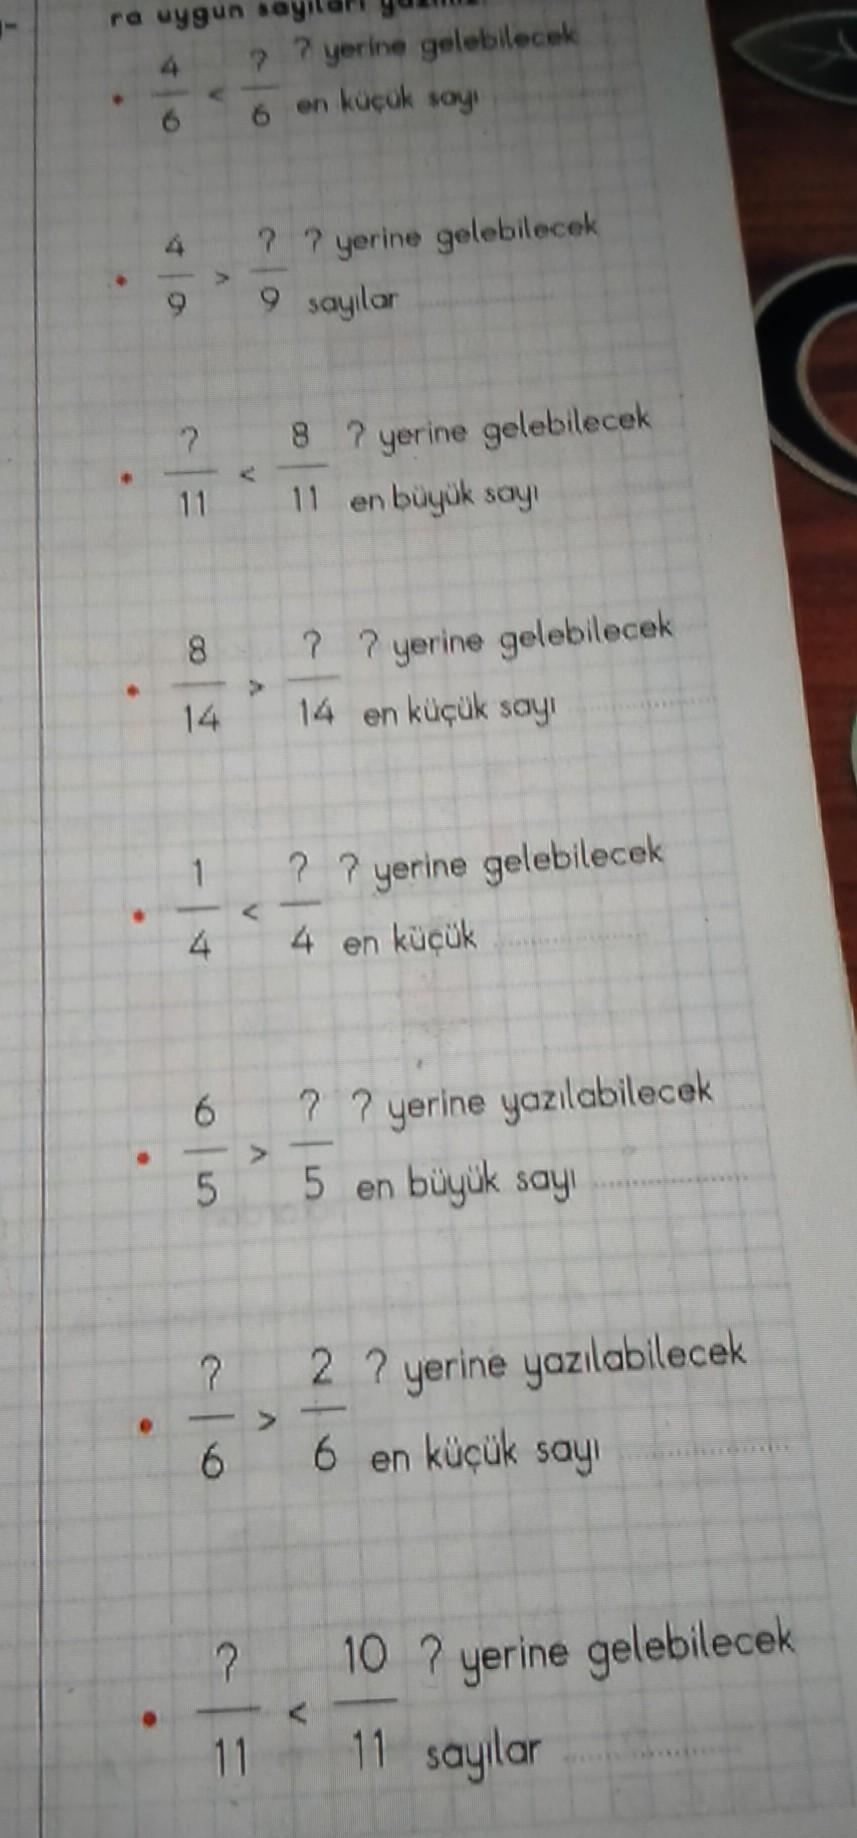 ra uygun sayıları
4/6 < ?/6 ? yerine gelebilecek
en küçük sayı
4/9 > ?/9 ? yerine gelebilecek
sayılar
?/11 < 8/11 ? yerine gelebilecek
en büyük sayı
8/14 > ?/14 ? yerine gelebilecek
en küçük sayı
1/4 < ?/4 ? yerine gelebilecek
en küçük
6/5 > ?/5 ? yerine yazılabilecek
en büyük sayı
?/6 > 2/6 ? yerine yazılabilecek
en küçük sayı
?/11 < 10/11 ? yerine gelebilecek
sayılar